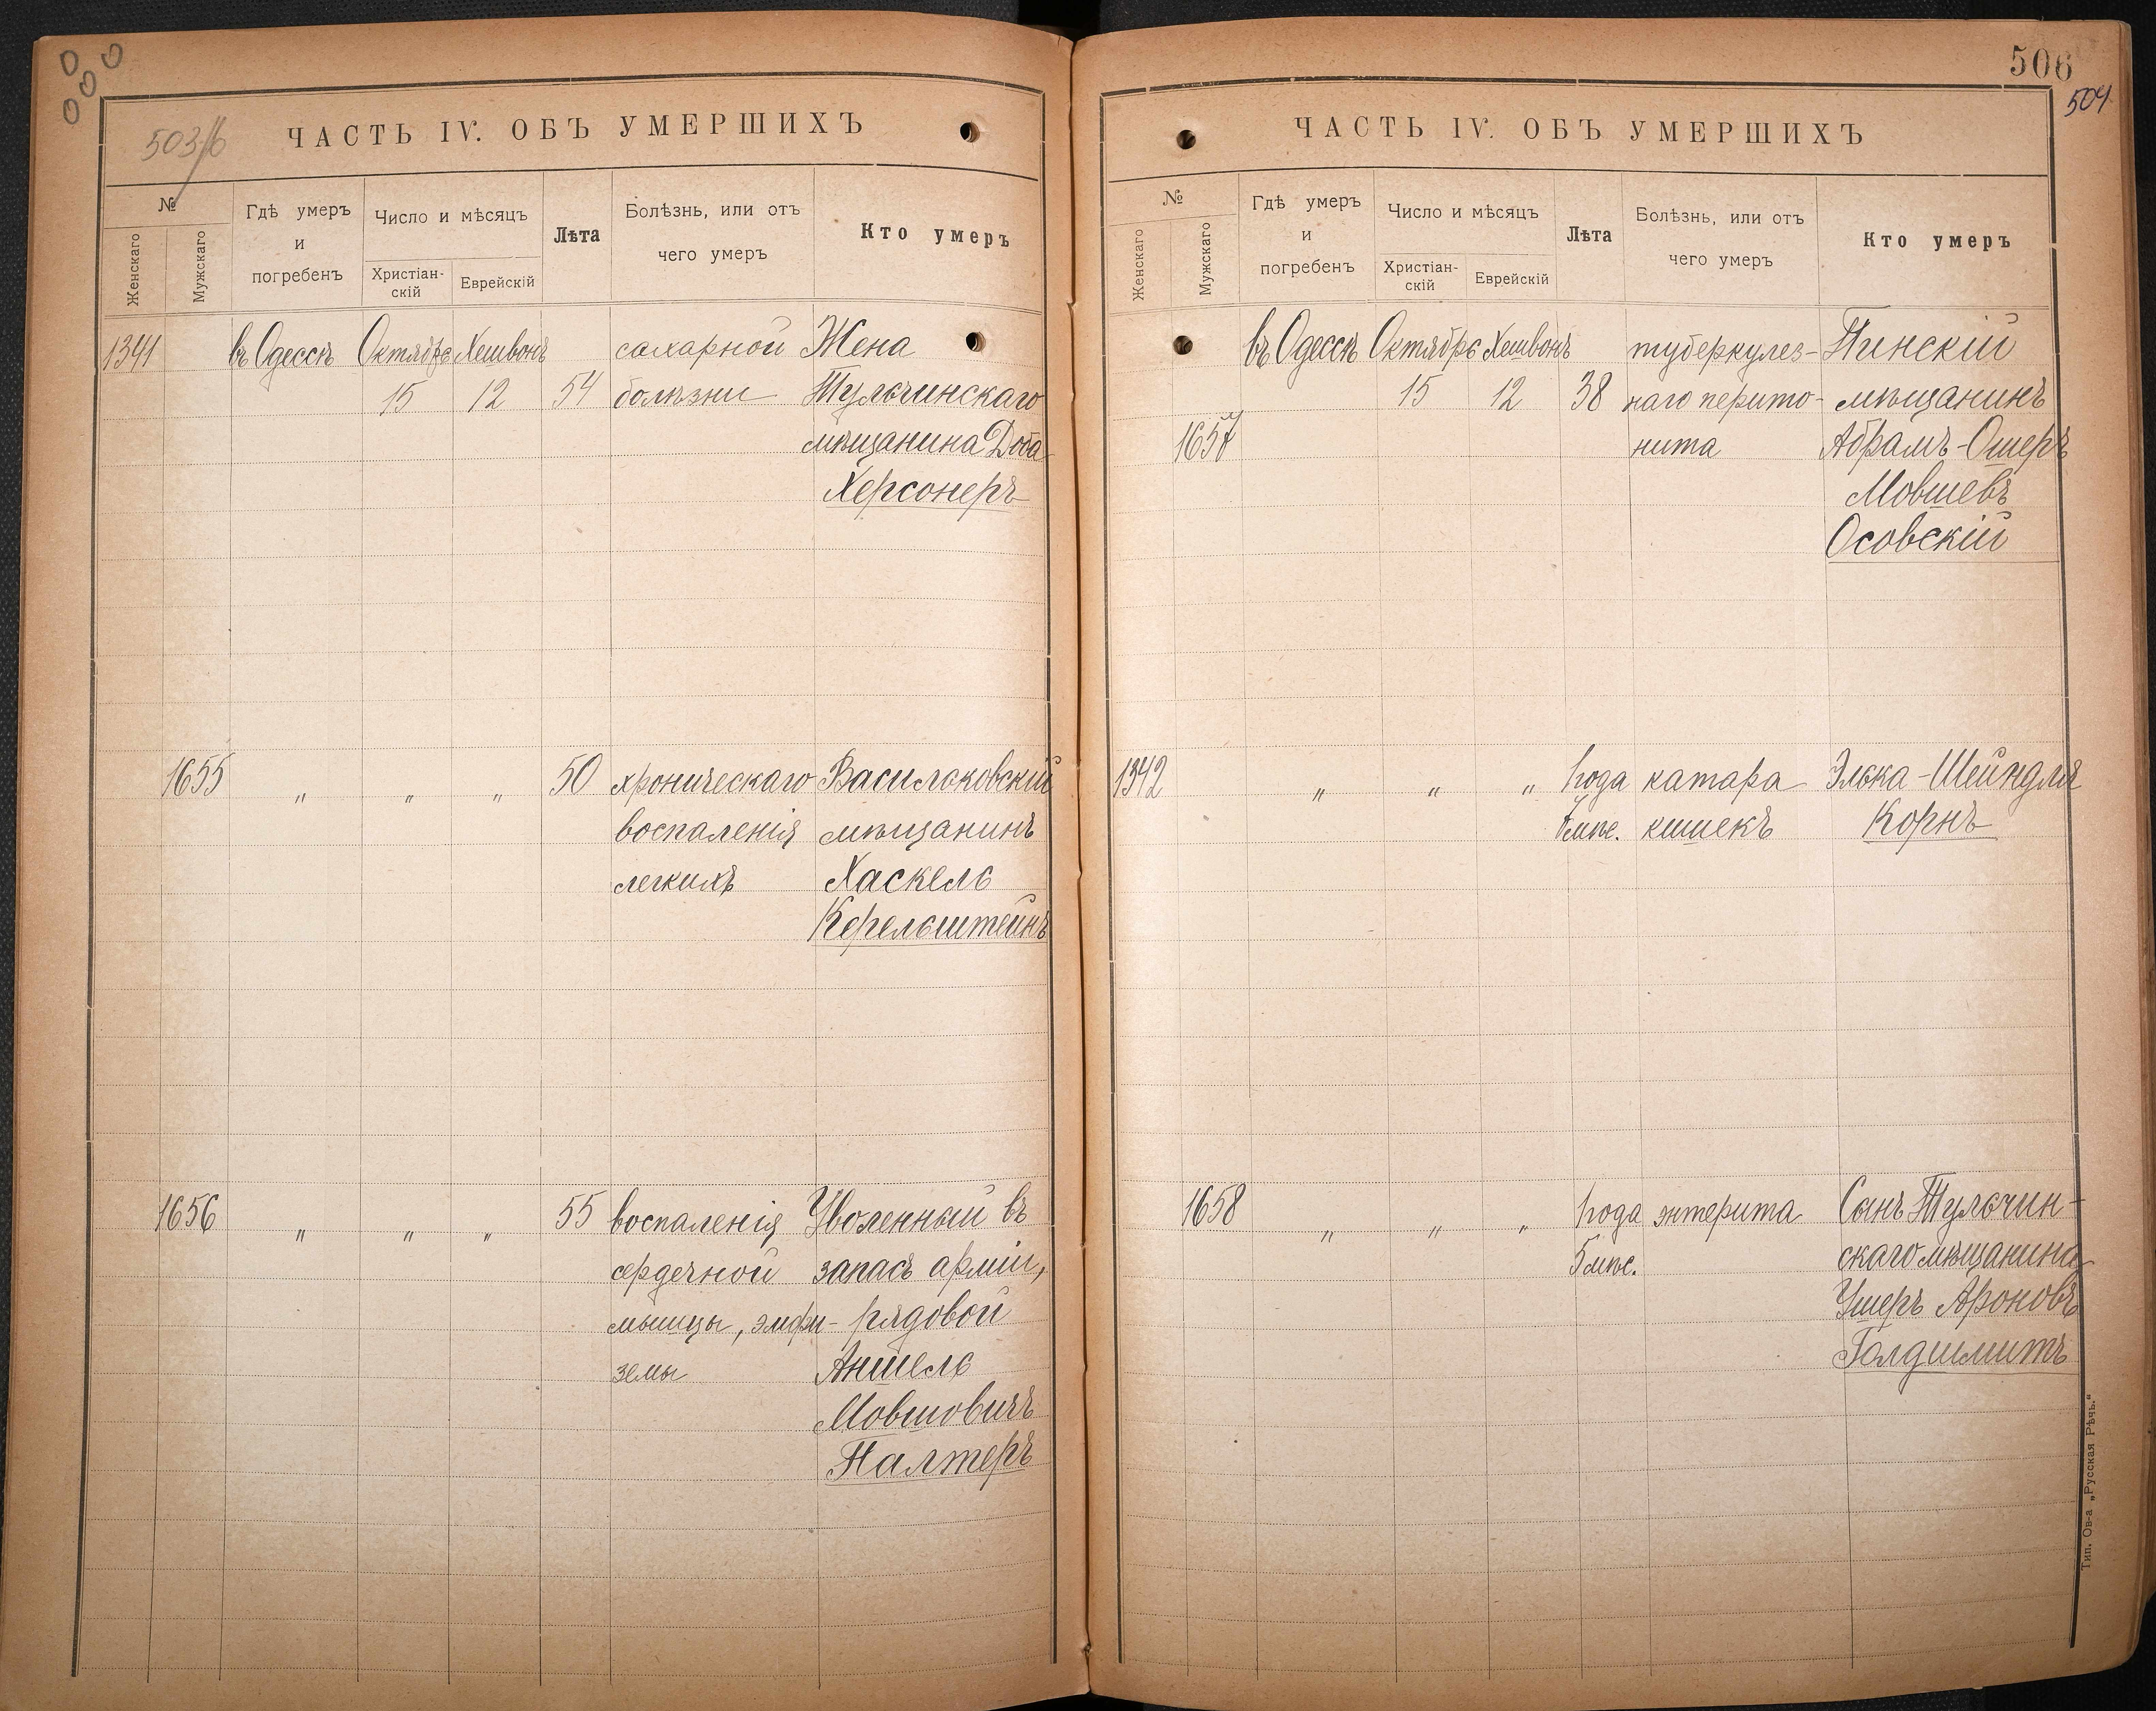 503/б
ЧАСТЬ IV. ОБЪ УМЕРШИХЪ
№
Женскаго
Мужскаго
Гдѣ умеръ
и
погребенъ
Число и мѣсяцъ
Христіан-
скій
Еврейскій
Лѣта
Болѣзнь, или отъ
чего умеръ
Кто умеръ
1341 въ Одессѣ Октября Хешвонъ сахарной Жена
15 12 54 болѣзни Тульчинскаго
мѣщанина Доба
Херсонеръ
1655 " " " 50 хроническаго Васильковскій
воспаленія мѣщанинъ
легкихъ Хаскель
Керельштейнъ
1656 " " " 55 воспаленія Уволенный въ
сердечной запасъ арміи,
мышцы, эмфи- рядовой
земы Аншель
Мовшовичъ
Палтеръ
506
504
ЧАСТЬ IV. ОБЪ УМЕРШИХЪ
№
Женскаго
Мужскаго
Гдѣ умеръ
и
погребенъ
Число и мѣсяцъ
Христіан-
скій
Еврейскій
Лѣта
Болѣзнь, или отъ
чего умеръ
Кто умеръ
въ Одессѣ Октября Хешвонъ туберкулез- Пинскій
15 12 38 наго перито- мѣщанинъ
1657 нита Абрамъ-Ошеръ
Мовшевъ
Осовскій
1342 " " " 1 года катара Элька-Шейндля
мѣс. кишекъ Корнъ
1658 " " " 1 года энтерита Сынъ Тульчин-
5 мѣс. скаго мѣщанина
Ушеръ Ароновъ
Голдшмитъ
Тип. Ов-а „Русская Рѣчь."